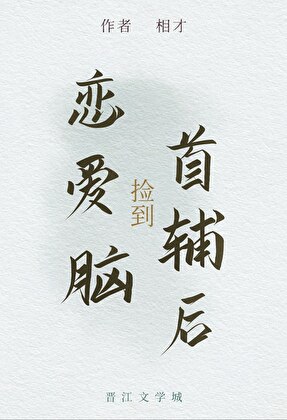 作者 相才
恋爱脑
捡到
首辅后
晋江文学城